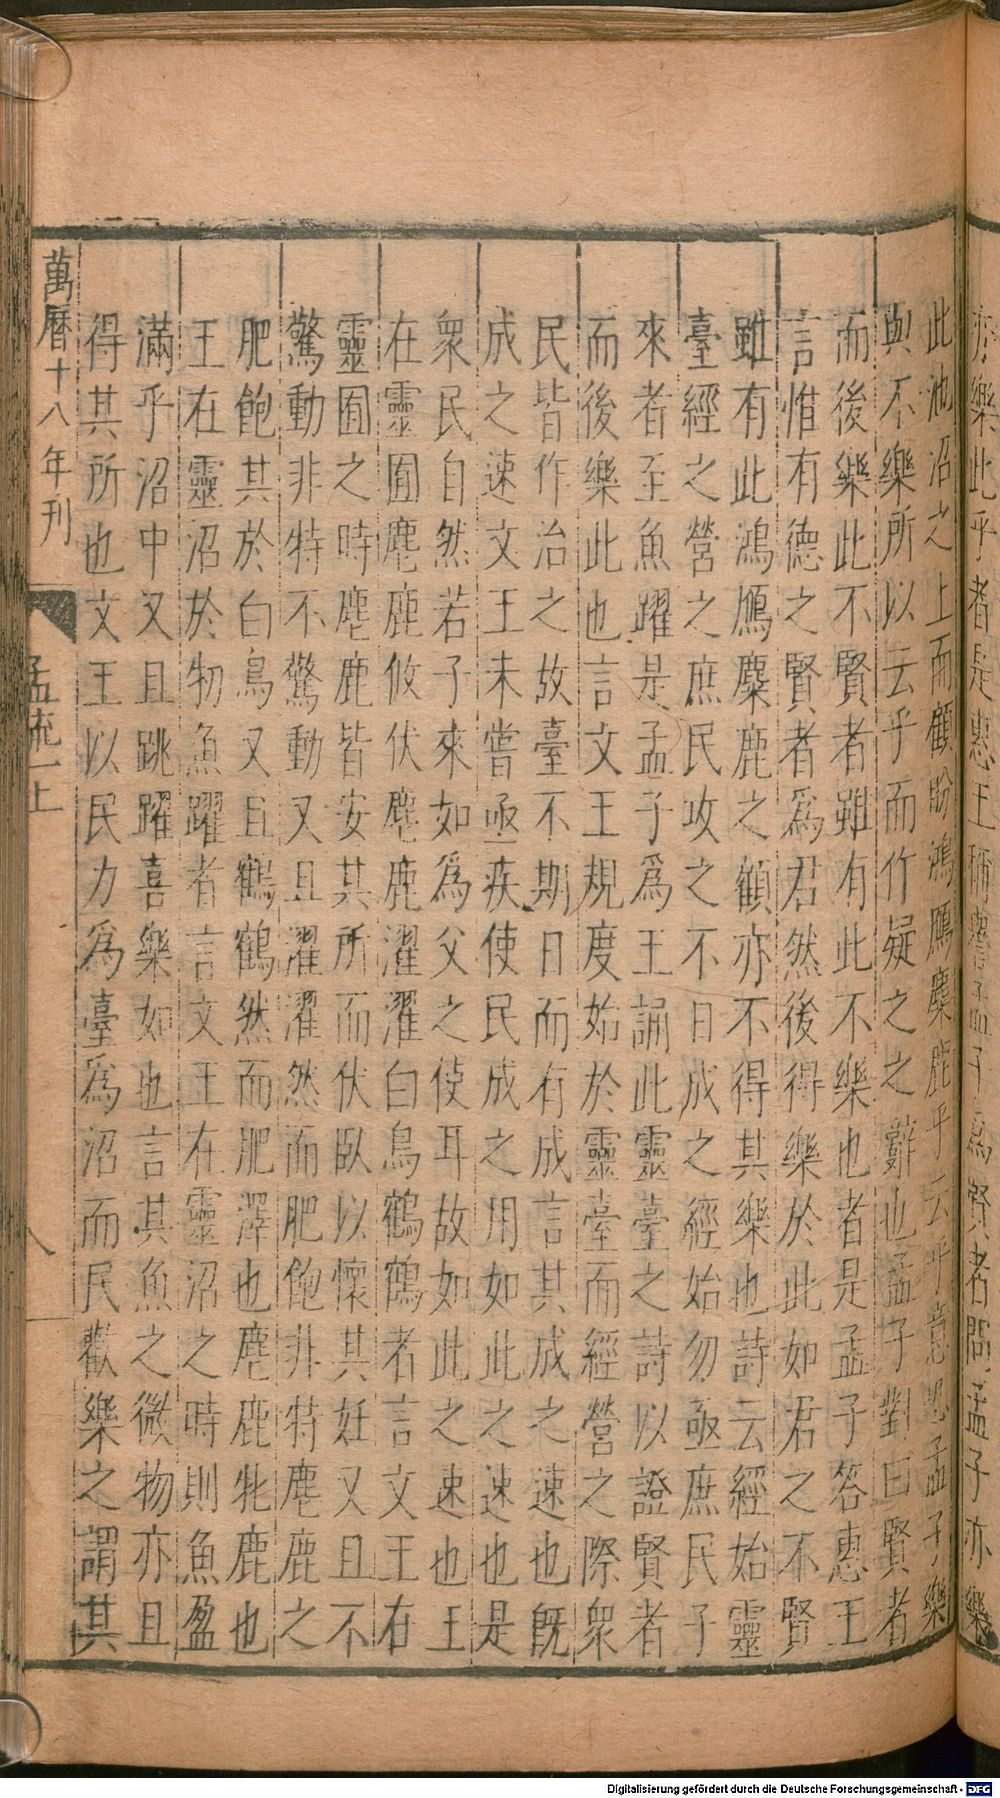 亦樂此乎者是惠王稱譽孟子爲賢者問孟子亦樂
此池沼之上而顧盼鴻鴈麋鹿乎云乎意恐孟子樂
與不樂所以云乎而作疑之之辭也孟子對曰賢者
而後樂此不賢者雖有此不樂也者是孟子答惠王
言惟有德之賢者爲君然後得樂於此如君之不賢
雖有此鴻鴈麋鹿之顧亦不得其樂也詩云經始靈
臺經之營之庶民攻之不日成之經始勿亟庶民子
來者至魚躍是孟子爲王誦此靈臺之詩以證賢者
而後樂此也言文王規度始於靈臺而經營之際衆
民皆作治之故臺不期日而有成言其成之速也旣
成之速文王未嘗亟疾使民成之用如此之速也是
衆民自然若子來如爲父之使耳故如此之速也王
在靈囿麀鹿攸伏麀鹿濯濯白鳥鶴鶴者言文王在
靈囿之時麀鹿皆安其所而伏臥以懷其妊又且不
驚動非特不驚動又且濯濯然而肥飽非特麀鹿之
肥飽其於白鳥又且鶴鶴然而肥澤也麀鹿牝鹿也
王在靈沼於物魚躍者言文王在靈沼之時則魚盈
滿乎沼中又且跳躍喜樂如也言其魚之微物亦且
得其所也文王以民力爲臺爲沼而民歡樂之謂其
萬曆十八年刊
孟疏一上
八
Digitalisierung gefördert durch die Deutsche Forschungsgemeinschaft - DFG